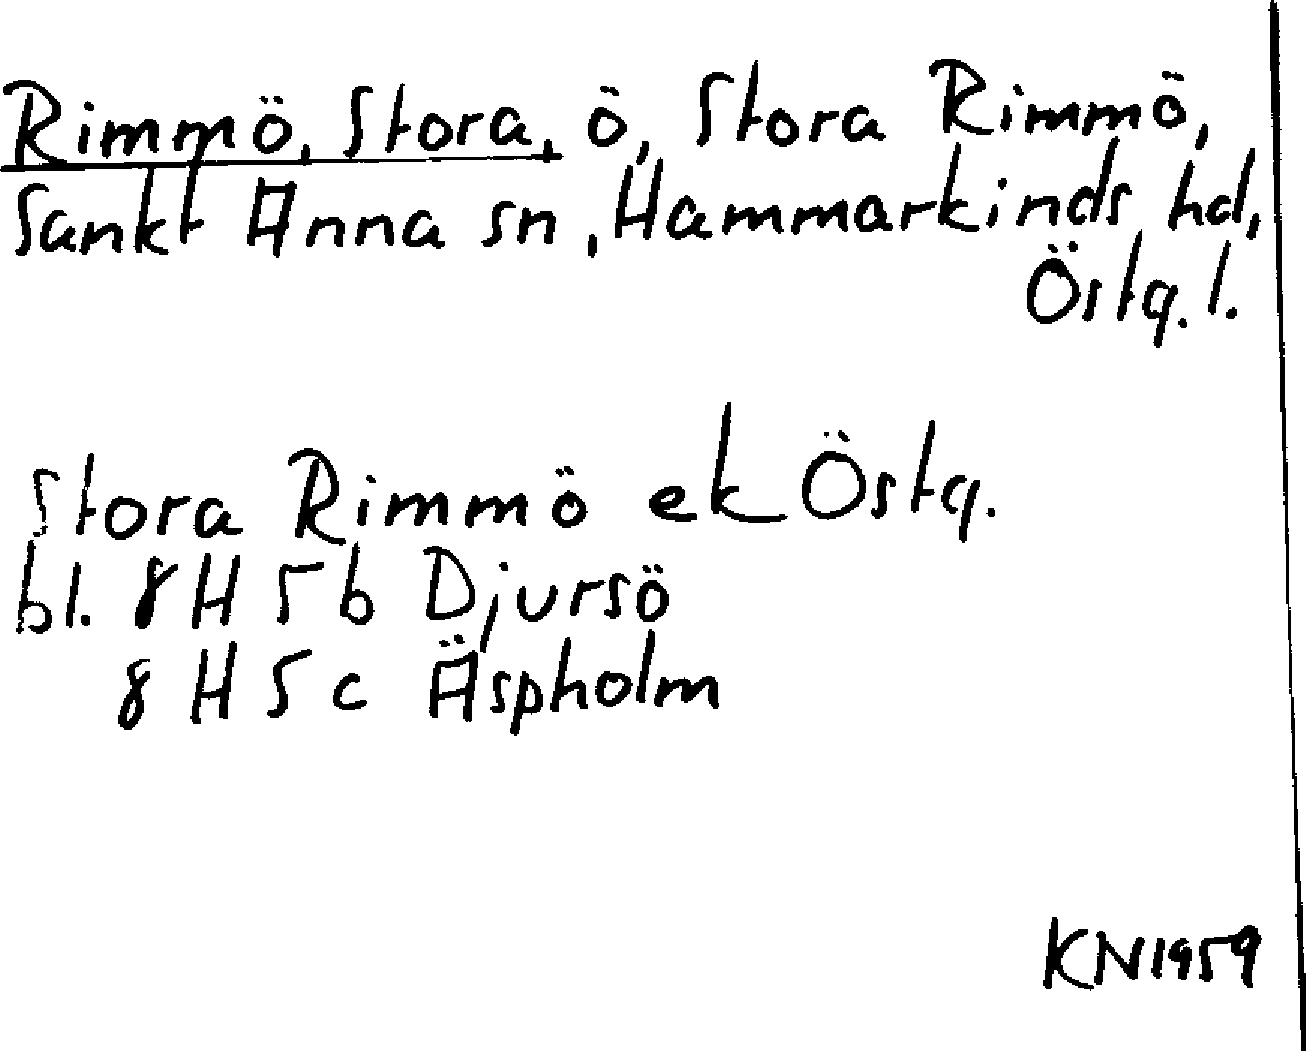 Rimmö, Stora, ö, Stora Rimmö,
Sankt Anna sn, Hammarkinds hd,
Östg. l.
Stora Rimmö ek Östg.
bl. 8 H 5 b Djursö
8 H 5 c Äspholm
KN 1959